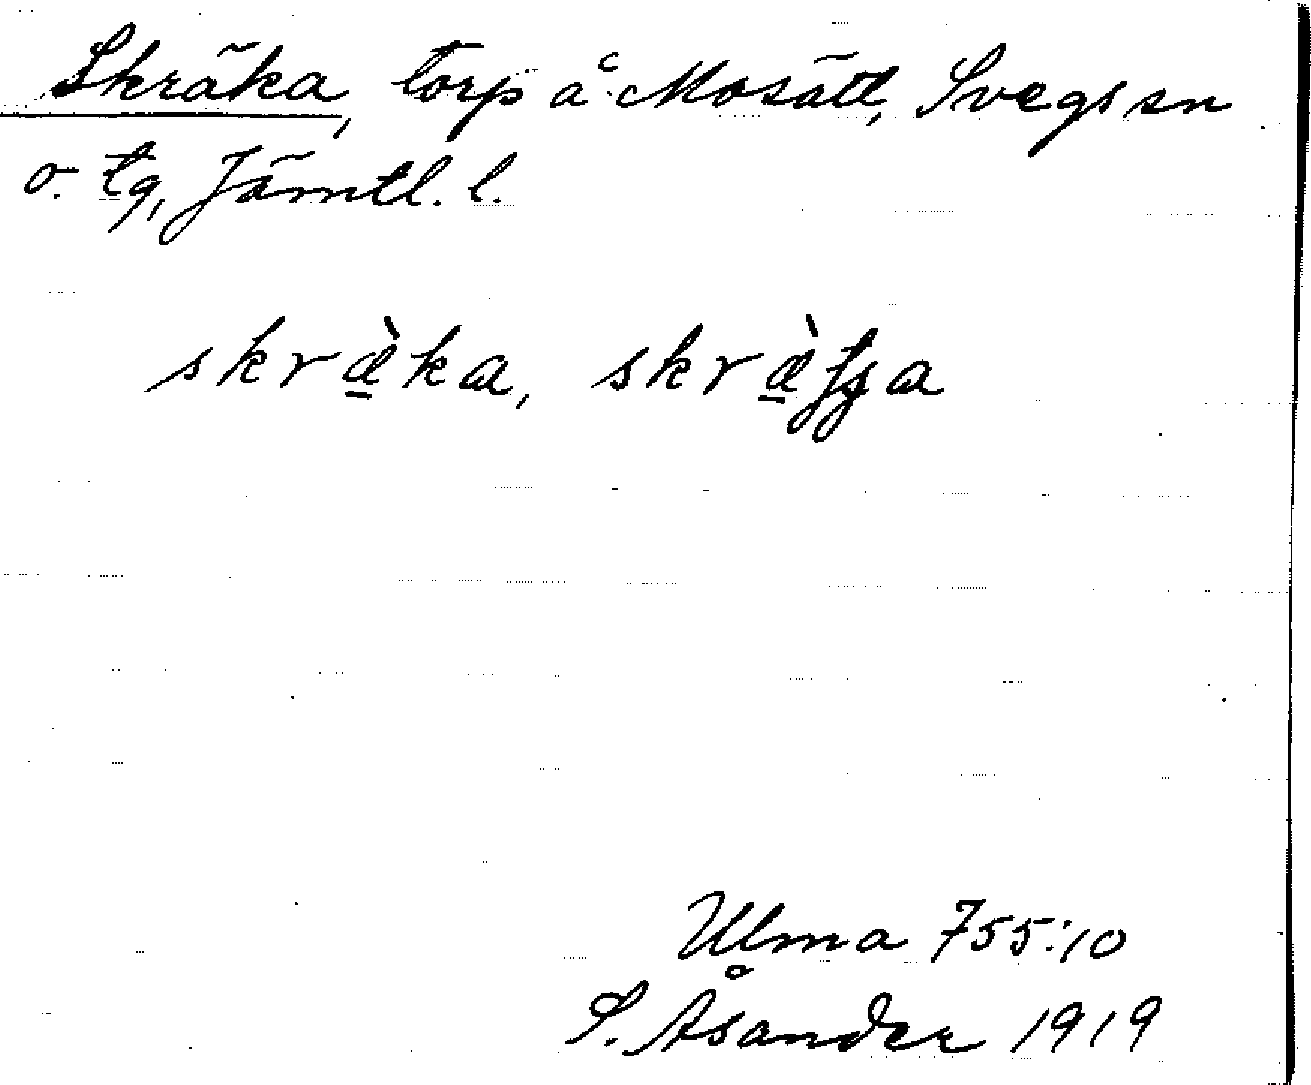 Skräka, torp å Mosätt, Svegs sn
o. tg, Jämtl. l.
skræ̀ka,
Ulma 755:10
S. Åsander 1919